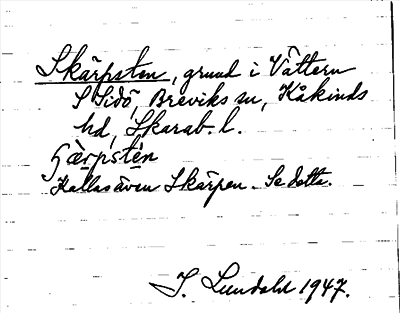 Skärpsten, grund i Vättern
S Sidö, Breviks sn, Kåkinds
hd, Skarab. l.
Kallas även Skärpen. Se detta.
I. Lundahl 1947.